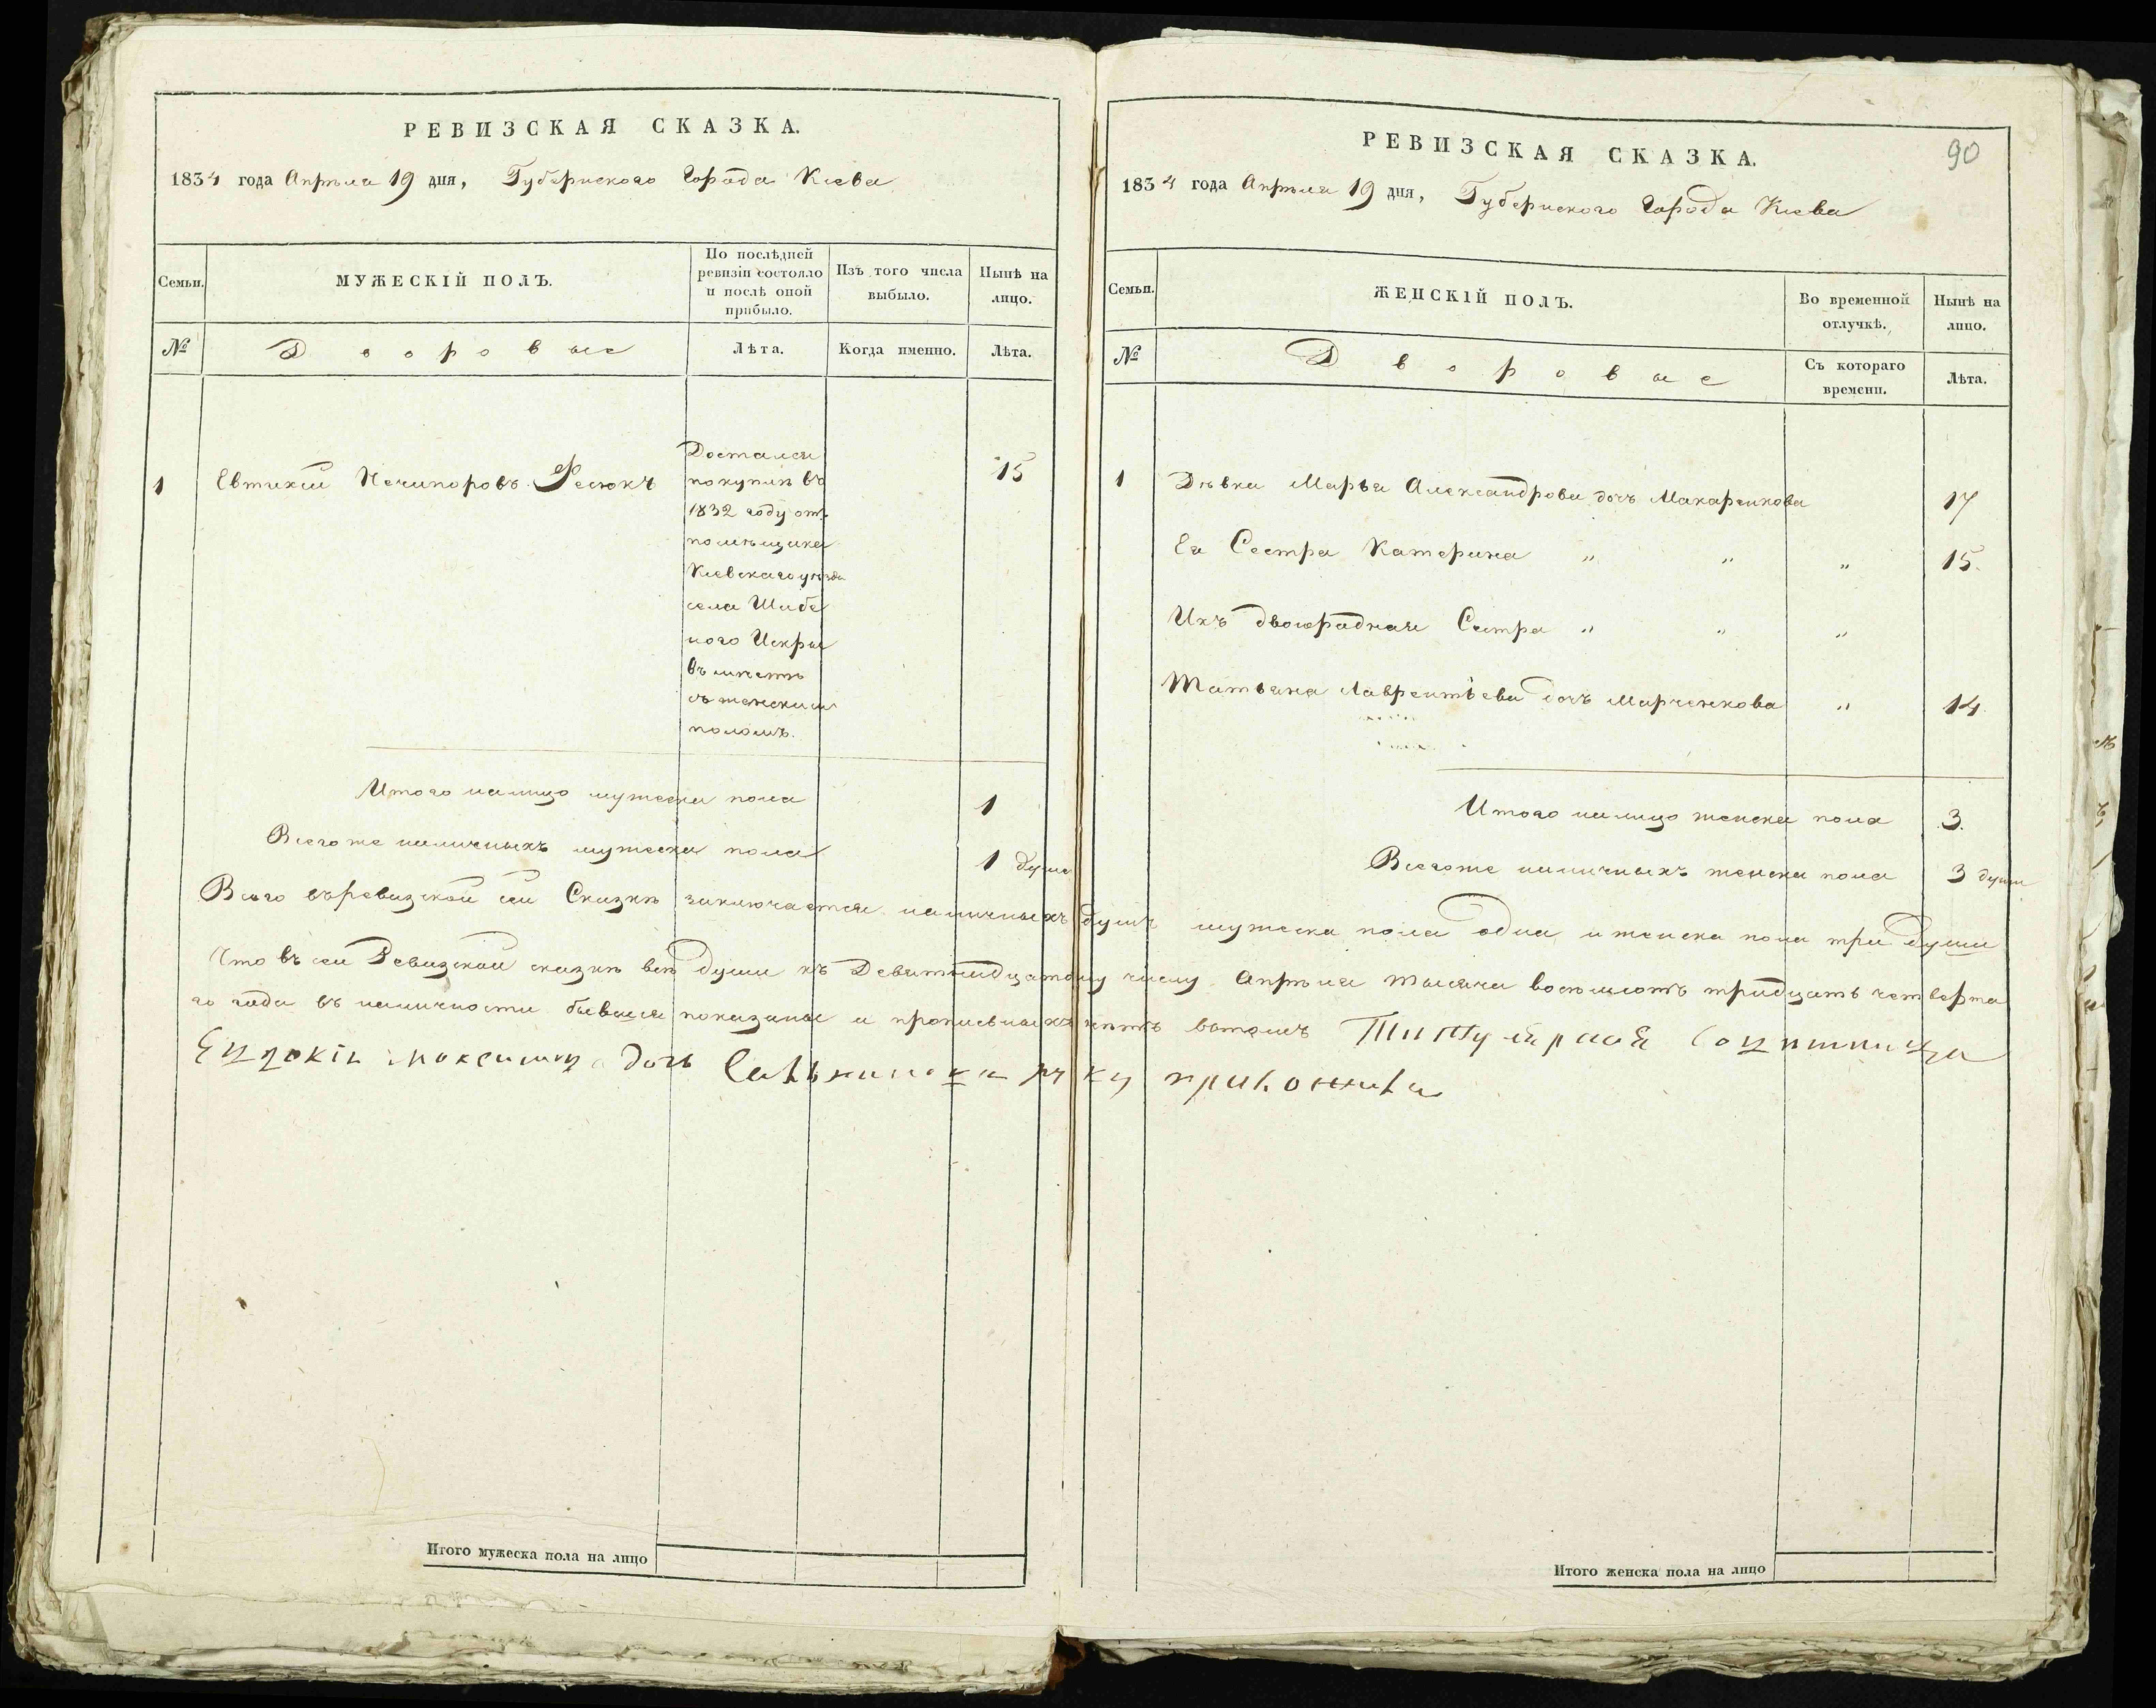 РЕВИЗСКАЯ СКАЗКА.
1834 года Апрѣля 19 дня, Губернского Города Кіева
Семьи.
МУЖЕСКІЙ ПОЛЪ.
По послѣдней ревизіи состояло и послѣ оной прибыло.
Изъ того числа выбыло.
Нынѣ на лицо.
№
Дворовые
Лѣта.
Когда именно.
Лѣта.
1 Евтихій Нечипоровъ Фесюкъ
Достался
покупки въ
1832 году отъ
помѣщика
Кіевскаго уѣзда
села Шибе
ного Искры
въ мѣстѣ
съ женскимъ
поломъ.
15
Итого налицо мужеска пола 1
Всегоже наличныхъ мужеска пола 1 душа
РЕВИЗСКАЯ СКАЗКА.
90
1834 года Апрѣля 19 дня, Губернского Города Кіева
Семьи.
ЖЕНСКІЙ ПОЛЪ.
Во временной отлучкѣ.
Нынѣ на лицо.
№
Дворовые
Съ котораго времени.
Лѣта.
1 Дѣвка Марья Александрова дочь Макаренкова 17
Ея Сестра Катерина " " " 15.
Ихъ двоюродная Сестра " " "
Татьяна Лаврентьева дочь Марченкова " 14
Итого налицо женска пола 3.
Всегоже наличныхъ женска пола 3 души
Всего въ ревизской сей Сказкѣ заключается наличныхъ душъ мужеска пола одна и женска пола три души
Что въ сей Ревизской сказкѣ всѣ души къ Девятнадцатому числу Апрѣля тысяча восемьсотъ тридцать четверта
го года въ наличности бывшія показаны и прописныхъ нѣтъ вътомъ Титулярная Совѣтница
Евдокія Максимова дочь руку приложила
Итого мужеска пола на лицо
Итого женска пола на лицо